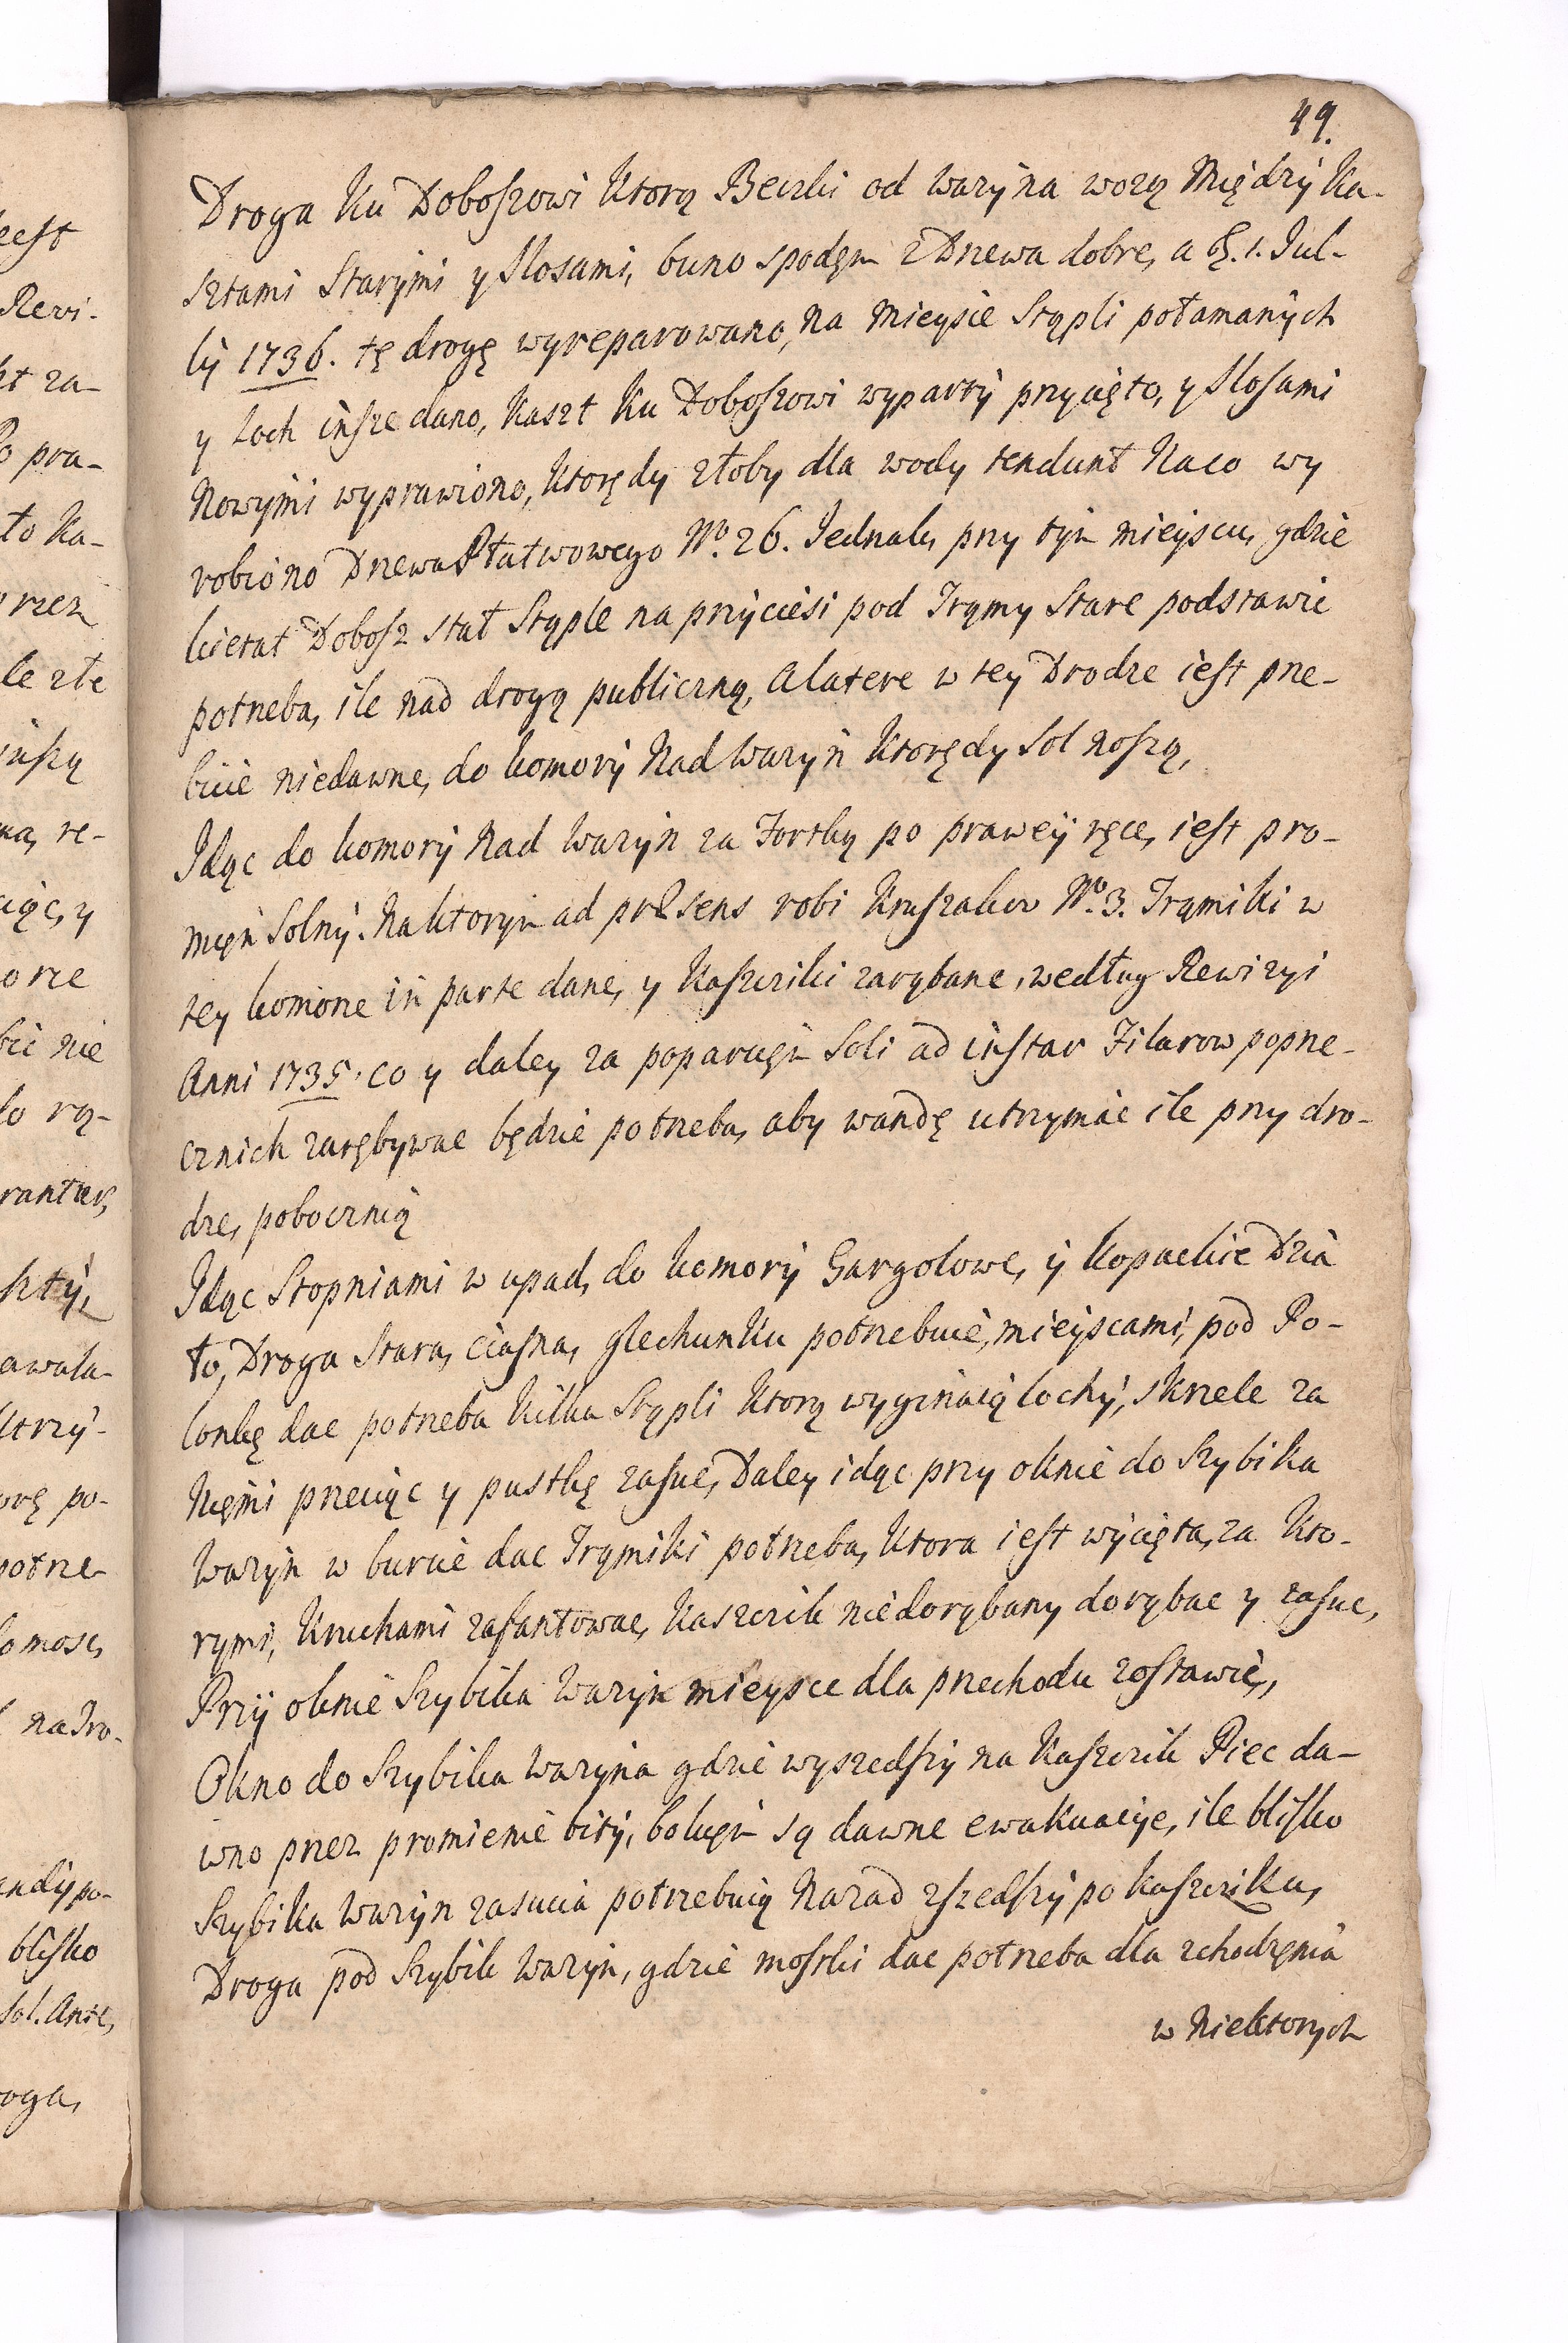 49.
Droga Ku Doboszowi Ktorą Beczki od Waryna wożą Między Ka-
sztami Starymi y Slosami, buno spodem z Drzewa dobre, a 1. Jul-
ly 1736. tę drogę wyreparowano, na Mieysie Stąpli połamanych
y Loch insze dano, Kaszt Ku Doboszowi wyparty przycięto, y Slosami
Nowymi wyprawiono, Ktorędy złoby dla wody tendunt Na co wy
robiono Drzewa Płatwowego No. 26. Jednak przy tym mieyscu, gdzie
kierat Dobosz stał Stąple na przyciesi pod Trąmy Stare podstawic
potrzeba, ile nad drogą publiczną, A latere w tey Drodze iest prze-
bicie niedawne, do komory Nad Waryn Ktorędy Sol noszą,
Idąc do komory Nad Waryn za Fortką po prawey ręce, iest pro-
mięn Solny. Na ktorym ad præsens robi Kruszakow No. 3. Trąmiki w
tey komorze in parte dane, y Kaszciki zarąbane, według Rewizyi
Anni 1735. co y daley za poparciem Soli ad instar Filarow poprze-
cznich zarębywac będzie potrzeba, aby wandę utrzymac ile przy dro-
dze, poboczną
Idąc Stopniami w upad, do komory Gargolowe, y Kopackie Dzia
ło, Droga Stara, ciasna, glechunku potrzebuie, mieyscami, pod Po-
lonkę dac potrzeba Kilka Stąpli Ktorą wyginaią Lochy, skrzele za
Nięmi przeciąc y pustkę zasuc, Daley idąc przy oknie do Szybika
Waryn w burcie dac Trąmiki potrzeba, Ktora iest wycięta, za Kto-
rymi, Kruchami zafantowac, Kaszcik niedorąbany dorąbac y zasuc,
Przy oknie Szybika Waryn mieysce dla przechodu zostawic,
Okno do Szybika Waryna gdzie wyszedszy na Kaszcik Piec da-
wno przez promienie bity, bokięm są dawne ewakuacye, ile blisko
Szybika Waryn zasucia potrzebuią Nazad zszedszy po Kasziku,
Droga pod Szybik Waryn, gdzie mostki dac potrzeba dla zchodzęnia
w Niektorych